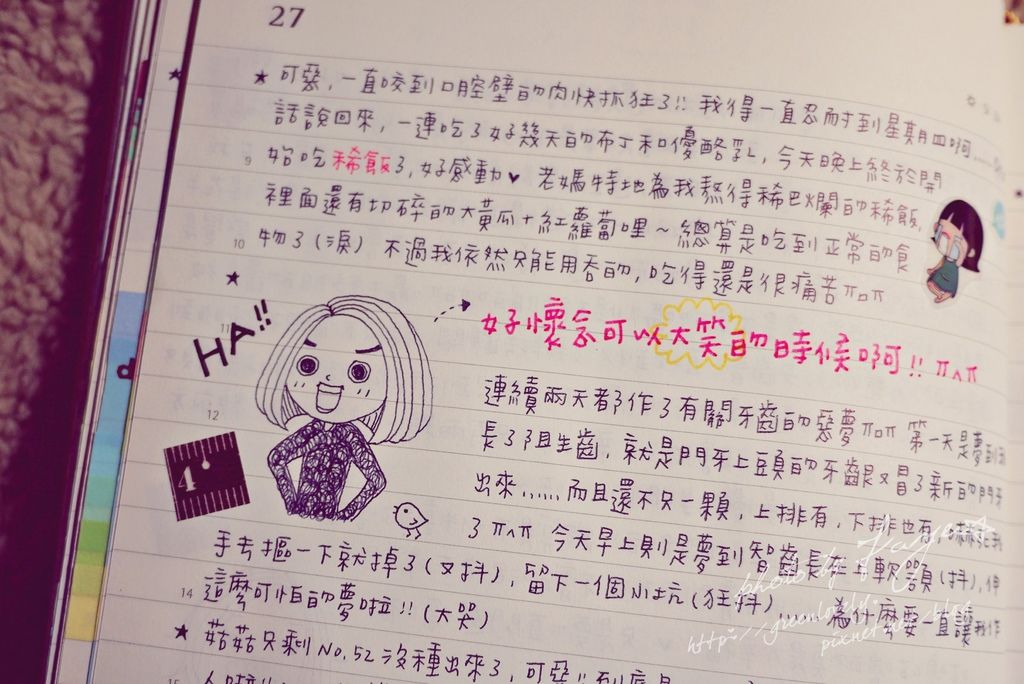 27
★ 可惡，一直咬到口腔壁的肉快抓狂了!! 我得一直忍耐到星期四啊……
話說回來，一連吃了好幾天的布丁和優酪乳，今天晚上終於開
9
始吃稀飯了，好感動♥ 老媽特地為我熬得稀巴爛的稀飯，
裡面還有切碎的大黃瓜+紅蘿蔔哩～總算是吃到正常的食
10
物了(淚) 不過我依然只能用吞的，吃得還是很痛苦πロπ
★
HA!!
好懷念可以大笑的時候啊!! π^π
11
連續兩天都作了有關牙齒的惡夢πロπ 第一天是夢到我
12
長了阻生齒，就是門牙上頭的牙齦又冒了新的門牙
4
出來……而且還不只一顆，上排有，下排也有，
了π^π 今天早上則是夢到智齒長在上軟顎(抖)，伸
手去摳一下就掉了(又抖)，留下一個小坑(狂抖)……為什麼要一直讓我作
14
這麼可怕的夢啦!!(大哭)
★ 菇菇只剩NO.52沒種出來了，可惡!!到底是
15
photo by
http://
pixnet.net/blog